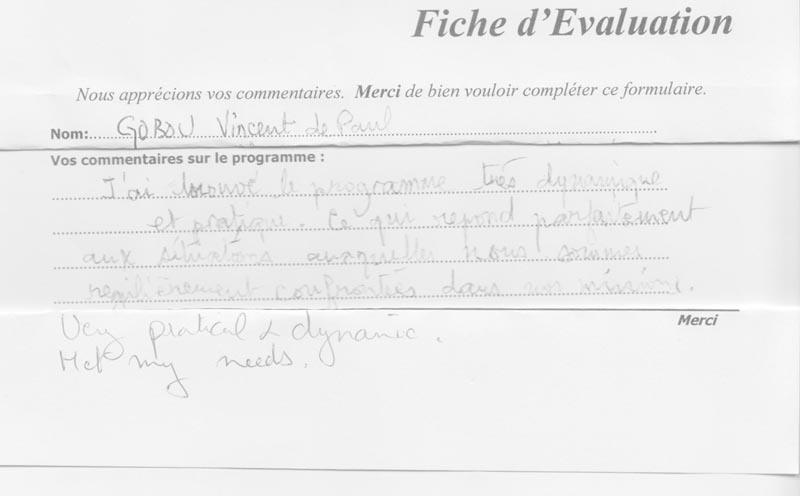 Fiche d'Evaluation
Nous apprécions vos commentaires. Merci de bien vouloir compléter ce formulaire.
Nom: GOBOU Vincent de Paul
Vos commentaires sur le programme :
J'ai trouvé le programme très dynamique
et pratique. Ce qui repond parfaitement
aux situations auxquelles nous sommes
regulièrement confrontés dans nos missions.
Merci
Very pratical & dynamic.
Met my needs.